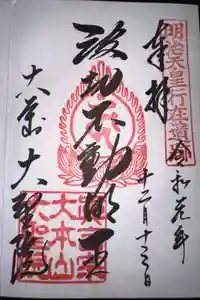 奉拝
明治天皇行在遺跡
令和元年
十二月十三日
波切不動明王
大本山
大聖院